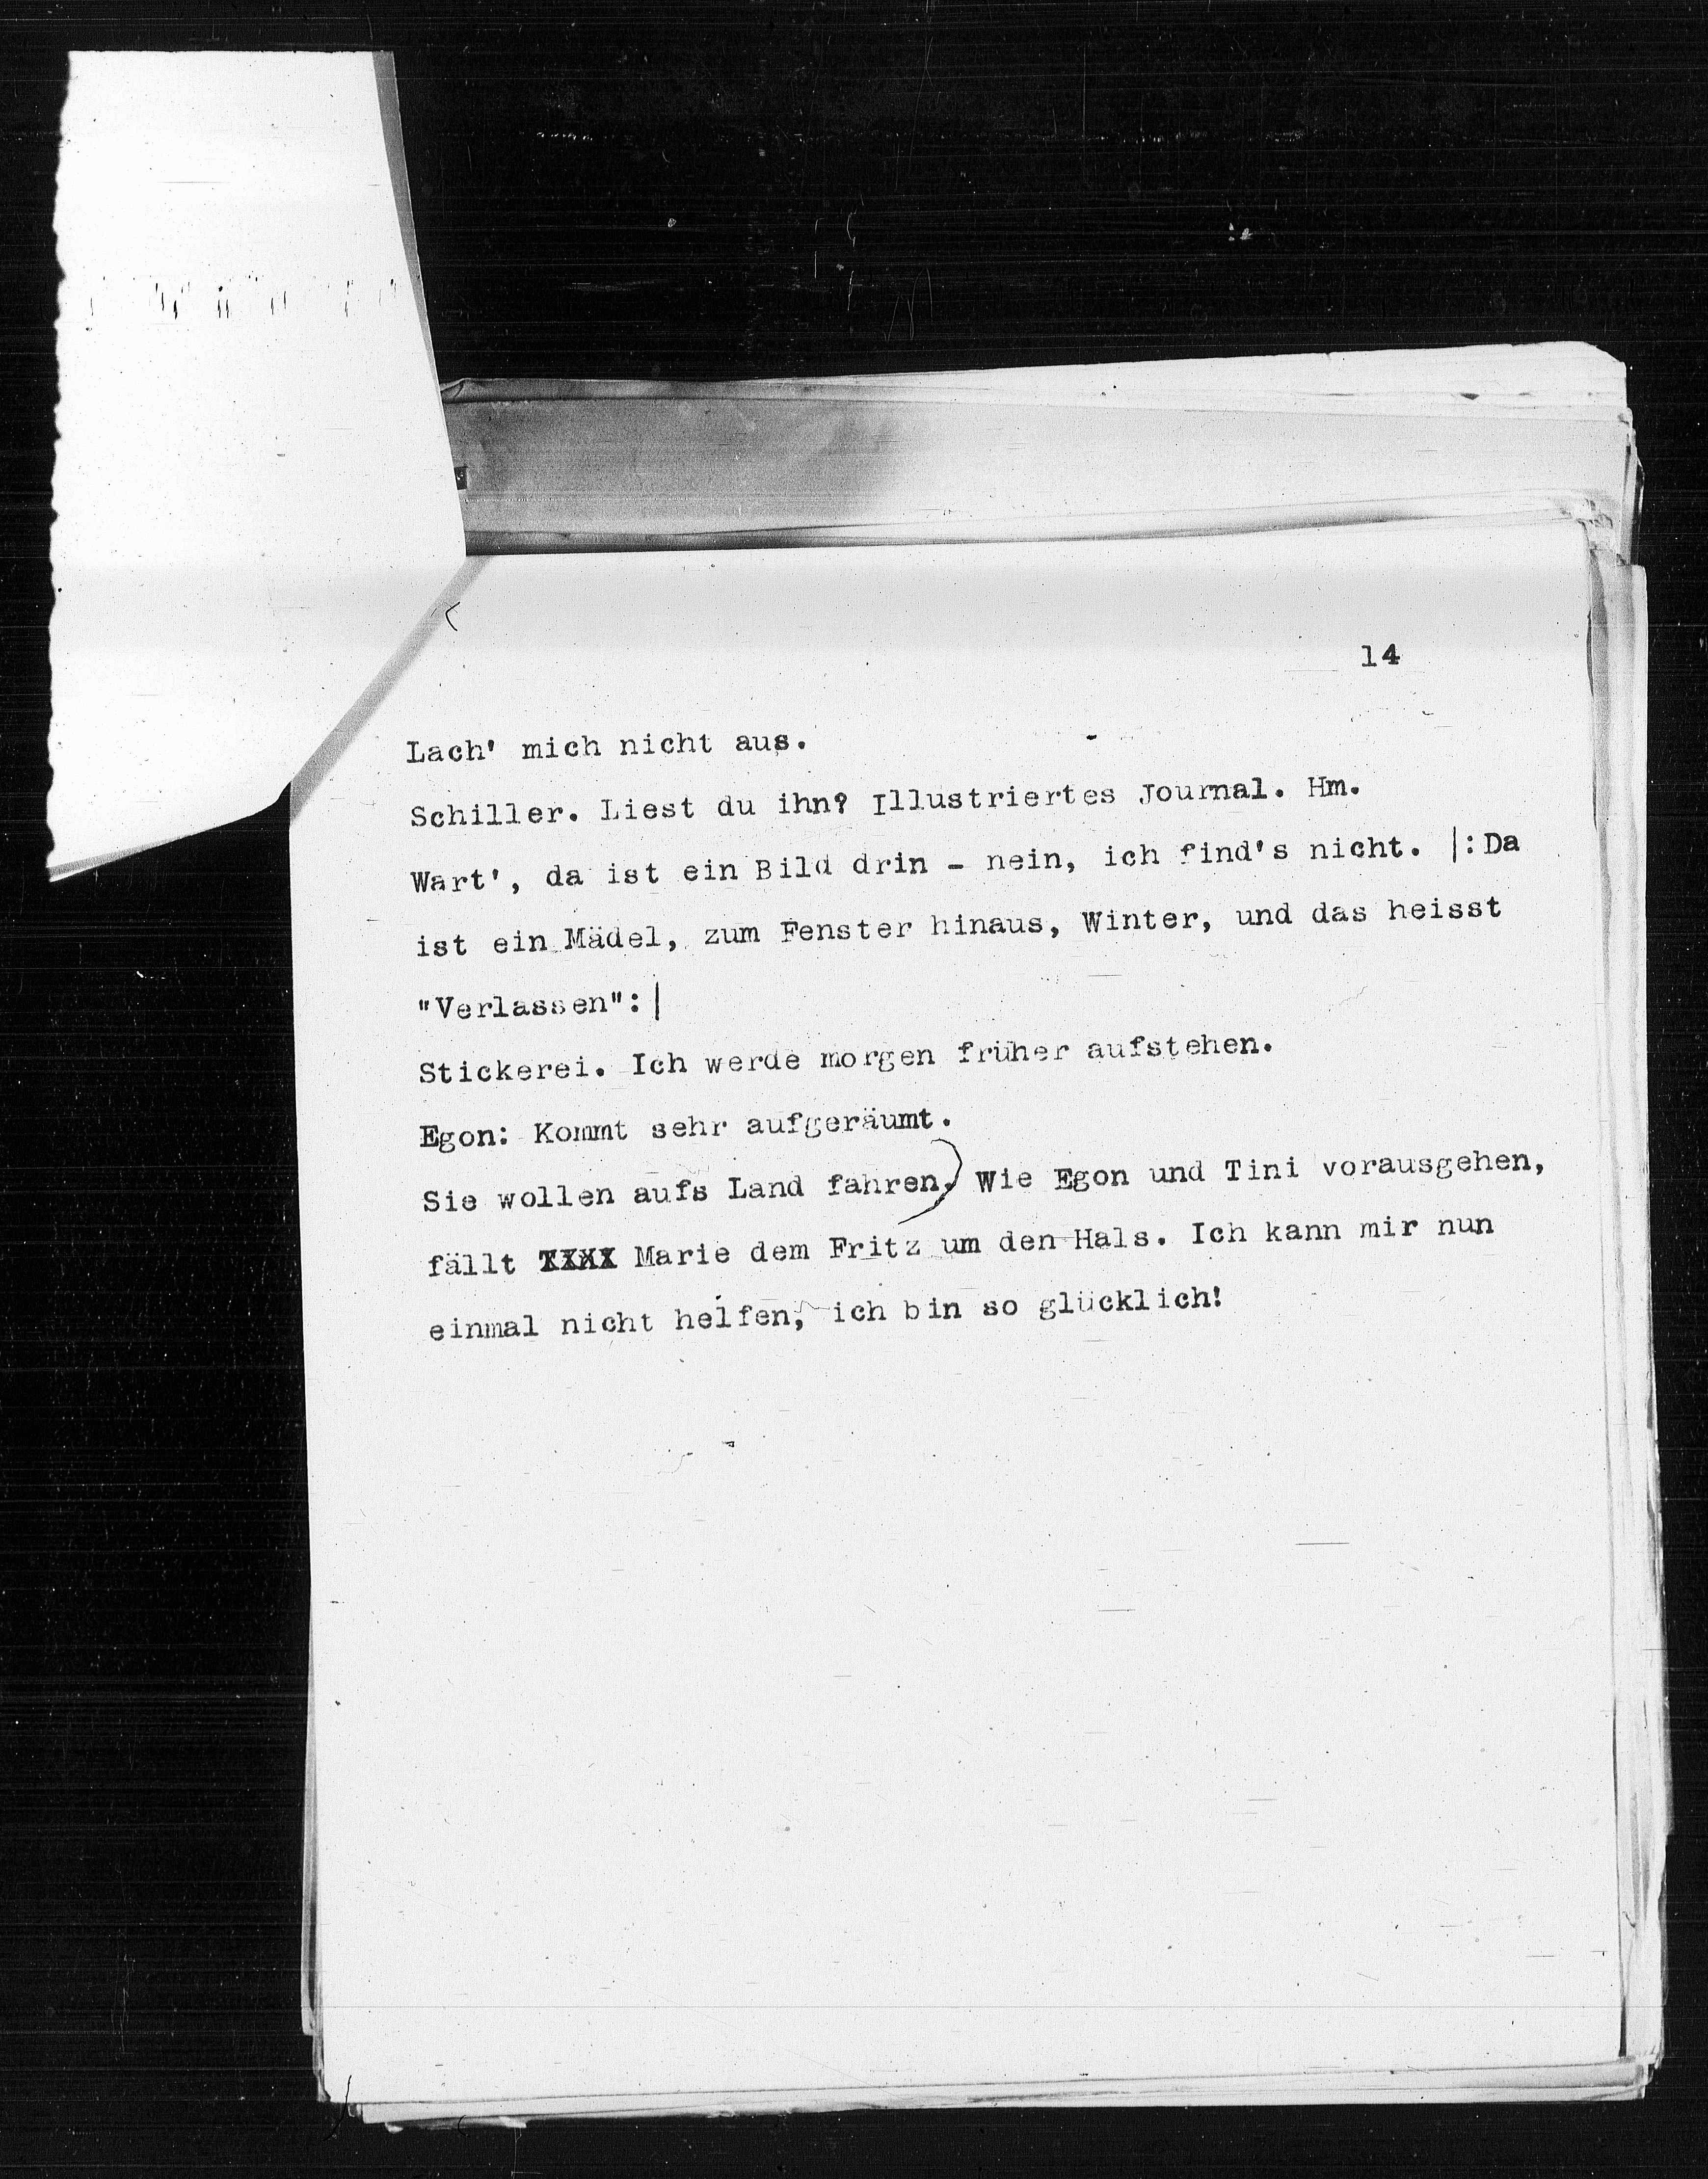 14
Lach' mich nicht aus.
Schiller. Liest du ihn? Illustriertes Journal. Hm.
Wart', da ist ein Bild drin - nein, ich find's nicht. |:Da
ist ein Mädel, zum Fenster hinaus, Winter, und das heisst
"Verlassen":|
Stickerei. Ich werde morgen früher aufstehen.
Egon: Kommt sehr aufgeräumt.
Sie wollen aufs Land fahren.) Wie Egon und Tini vorausgehen,
fällt XXXX Marie dem Fritz um den Hals. Ich kann mir nun
einmal nicht helfen, ich bin so glücklich!